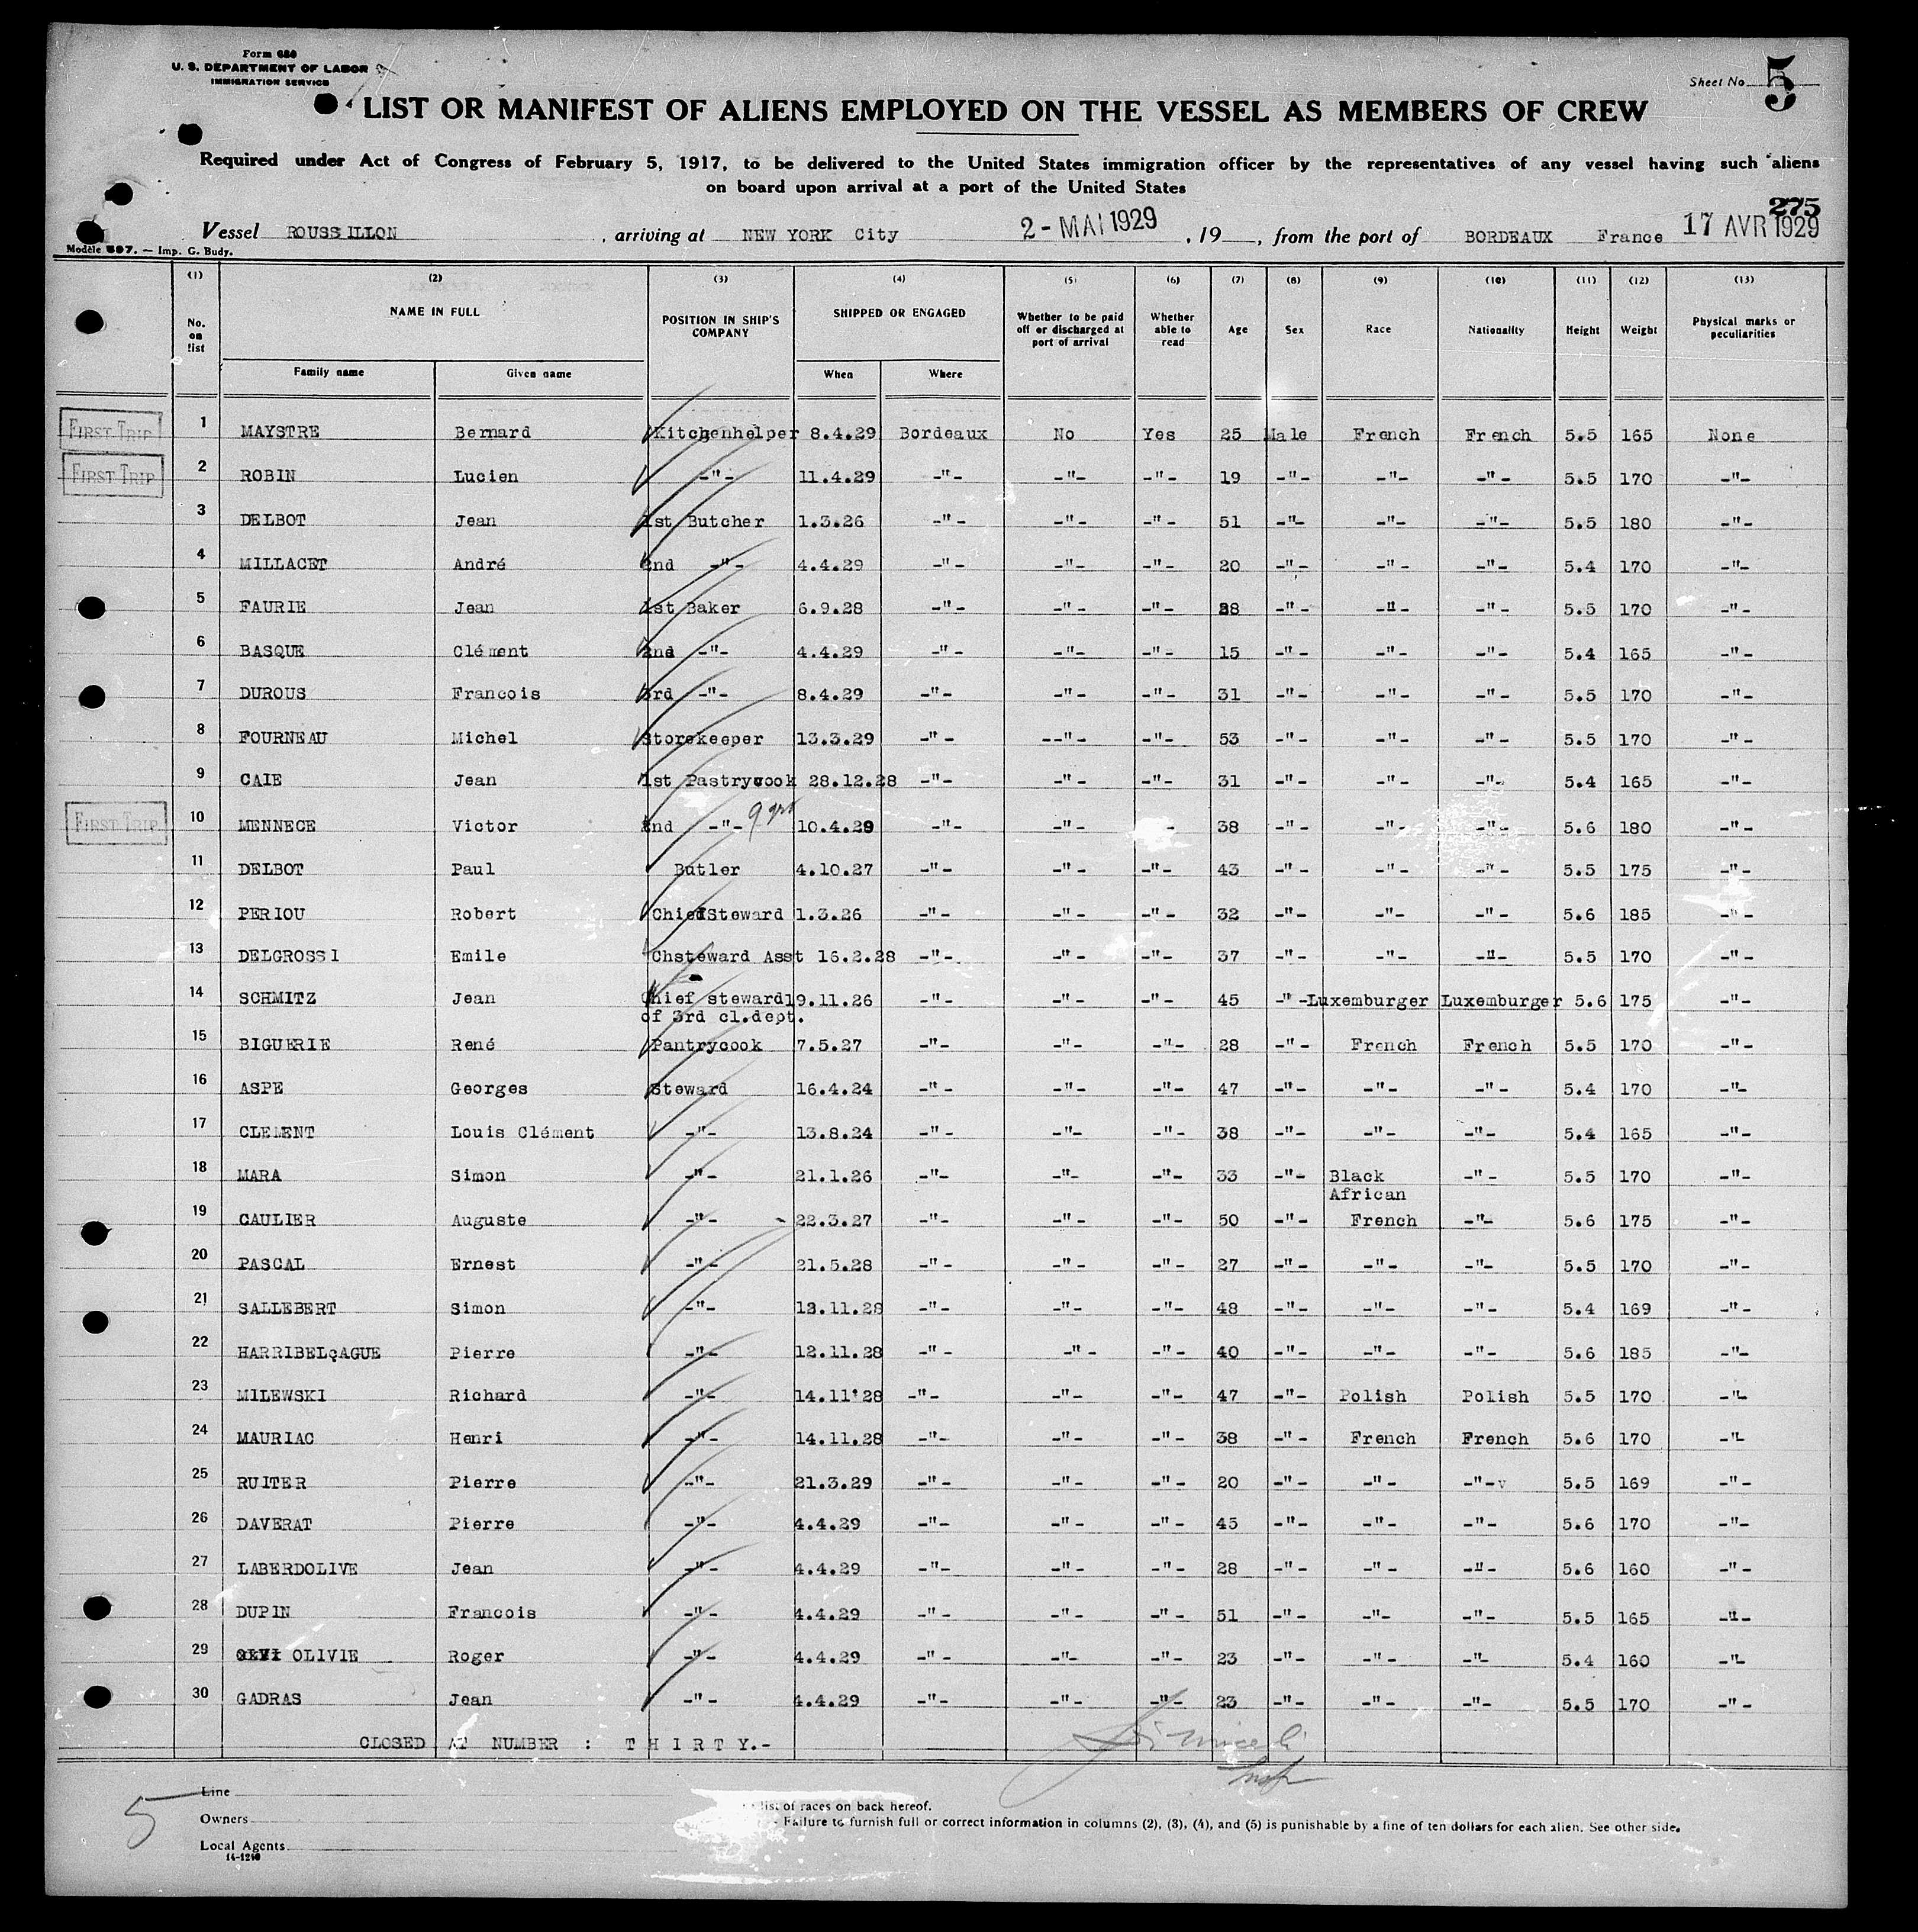 Form 680
U. S. DEPARTMENT OF LABOR
IMMIGRATION SERVICE
Sheet No 5
LIST OR MANIFEST OF ALIENS EMPLOYED ON THE VESSEL AS MEMBERS OF CREW
Required under Act of Congress of February 5, 1917, to be delivered to the United States immigration officer by the representatives of any vessel having such aliens
on board upon arrival at a port of the United States
275
Vessel ROUSSILLON, arriving at NEW YORK City 2-MAI 1929, 19, from the port of BORDEAUX France 17 AVR 1929
Modèle 697. — Imp. G. Budy.
(1) (2) (3) (4) (5) (6) (7) (8) (9) (10) (11) (12) (13)
No. on list NAME IN FULL POSITION IN SHIP'S COMPANY SHIPPED OR ENGAGED Whether to be paid off or discharged at port of arrival Whether able to read Age Sex Race Nationality Height Weight Physical marks or peculiarities
Family name Given name When Where
FIRST TRIP 1 MAYSTRE Bernard Kitchenhelper 8.4.29 Bordeaux No Yes 25 Male French French 5.5 165 None
FIRST TRIP 2 ROBIN Lucien -"- 11.4.29 -"- -"- -"- 19 -"- -"- -"- 5.5 170 -"-
3 DELBOT Jean 1st Butcher 1.3.26 -"- -"- -"- 51 -"- -"- -"- 5.5 180 -"-
4 MILLACET André 2nd -"- 4.4.29 -"- -"- -"- 20 -"- -"- -"- 5.4 170 -"-
5 FAURIE Jean 1st Baker 6.9.28 -"- -"- -"- 38 -"- -"- -"- 5.5 170 -"-
6 BASQUE Clément 2nd -"- 4.4.29 -"- -"- -"- 15 -"- -"- -"- 5.4 165 -"-
7 DUROUS Francois 3rd -"- 8.4.29 -"- -"- -"- 31 -"- -"- -"- 5.5 170 -"-
8 FOURNEAU Michel Storekeeper 13.3.29 -"- --"- -"- 53 -"- -"- -"- 5.5 170 -"-
9 CAIE Jean 1st Pastrycook 28.12.28 -"- -"- -"- 31 -"- -"- -"- 5.4 165 -"-
FIRST TRIP 10 MENNECE Victor 2nd -"- 10.4.29 -"- -"- - 38 -"- -"- -"- 5.6 180 -"-
11 DELBOT Paul Butler 4.10.27 -"- -"- -"- 43 -"- -"- -"- 5.5 175 -"-
12 PERIOU Robert Chief Steward 1.3.26 -"- -"- -"- 32 -"- -"- -"- 5.6 185 -"-
13 DELGROSSI Emile Chsteward Asst 16.2.28 -"- -"- -"- 37 -"- -"- -"- 5.5 170 -"-
14 SCHMITZ Jean Chief steward 19.11.26 -"- -"- -"- 45 -"- Luxemburger Luxemburger 5.6 175 -"-
of 3rd cl.dept.
15 BIGUERIE René Pantrycook 7.5.27 -"- -"- -"- 28 -"- French French 5.5 170 -"-
16 ASPE Georges Steward 16.4.24 -"- -"- -"- 47 -"- -"- -"- 5.4 170 -"-
17 CLEMENT Louis Clément -"- 13.8.24 -"- -"- -"- 38 -"- -"- -"- 5.4 165 -"-
18 MARA Simon -"- 21.1.26 -"- -"- -"- 33 -"- Black -"- 5.5 170 -"-
African
19 CAULIER Auguste -"- 22.3.27 -"- -"- -"- 50 -"- French -"- 5.6 175 -"-
20 PASCAL Ernest -"- 21.5.28 -"- -"- -"- 27 -"- -"- -"- 5.5 170 -"-
21 SALLEBERT Simon -"- 13.11.28 -"- -"- -"- 48 -"- -"- -"- 5.4 169 -"-
22 HARRIBELçAGUE Pierre -"- 12.11.28 -"- -"- -"- 40 -"- -"- -"- 5.6 185 -"-
23 MILEWSKI Richard -"- 14.11'28 -"- -"- -"- 47 -"- Polish Polish 5.5 170 -"-
24 MAURIAC Henri -"- 14.11.28 -"- -"- -"- 38 -"- French French 5.6 170 -"-
25 RUITER Pierre -"- 21.3.29 -"- -"- -"- 20 -"- -"- -"- 5.5 169 -"-
26 DAVERAT Pierre -"- 4.4.29 -"- -"- -"- 45 -"- -"- -"- 5.6 170 -"-
27 LABERDOLIVE Jean -"- 4.4.29 -"- -"- -"- 28 -"- -"- -"- 5.6 160 -"-
28 DUPIN Francois -"- 4.4.29 -"- -"- -"- 51 -"- -"- -"- 5.5 165 -"-
29 OLIVIE Roger -"- 4.4.29 -"- -"- -"- 23 -"- -"- -"- 5.4 160 -"-
30 GADRAS Jean -"- 4.4.29 -"- -"- -"- 23 -"- -"- -"- 5.5 170 -"-
CLOSED AT NUMBER : T H I R T Y.-
Insp
5
Line
Owners
Local Agents
14-1240
list of races on back hereof.
Failure to furnish full or correct information in columns (2), (3), (4), and (5) is punishable by a fine of ten dollars for each alien. See other side.